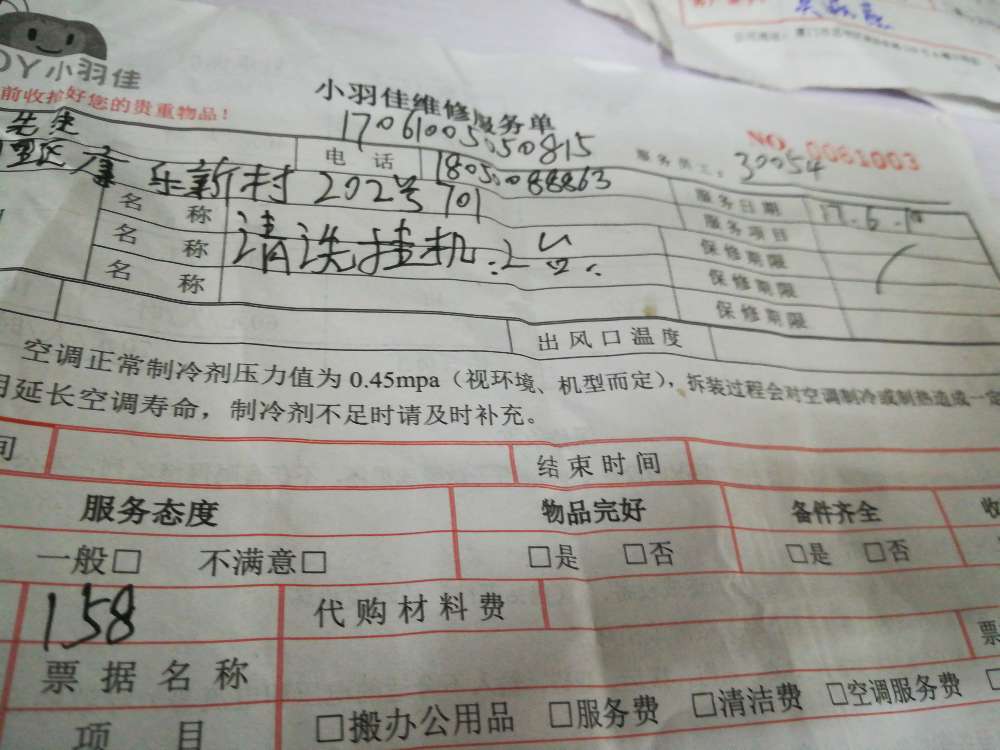 小羽佳
前收拾好您的贵重物品！
小羽佳维修服务单
17061005050815
NO. 0061003
服务员工：30054
先生
电话
18050088863
服务日期
17.6.10
康乐新村202号701
名称
服务项目
名称
清洗挂机:2台.
保修期限
名称
保修期限
保修期限
出风口温度
空调正常制冷剂压力值为0.45mpa（视环境、机型而定），拆装过程会对空调制冷或制热造成一定
延长空调寿命，制冷剂不足时请及时补充。
间
结束时间
服务态度
物品完好
备件齐全
收
一般□ 不满意□
□是 □否
□是 □否
158
代购材料费
票据名称
票
项目
□搬办公用品 □服务费 □清洁费 □空调服务费 □